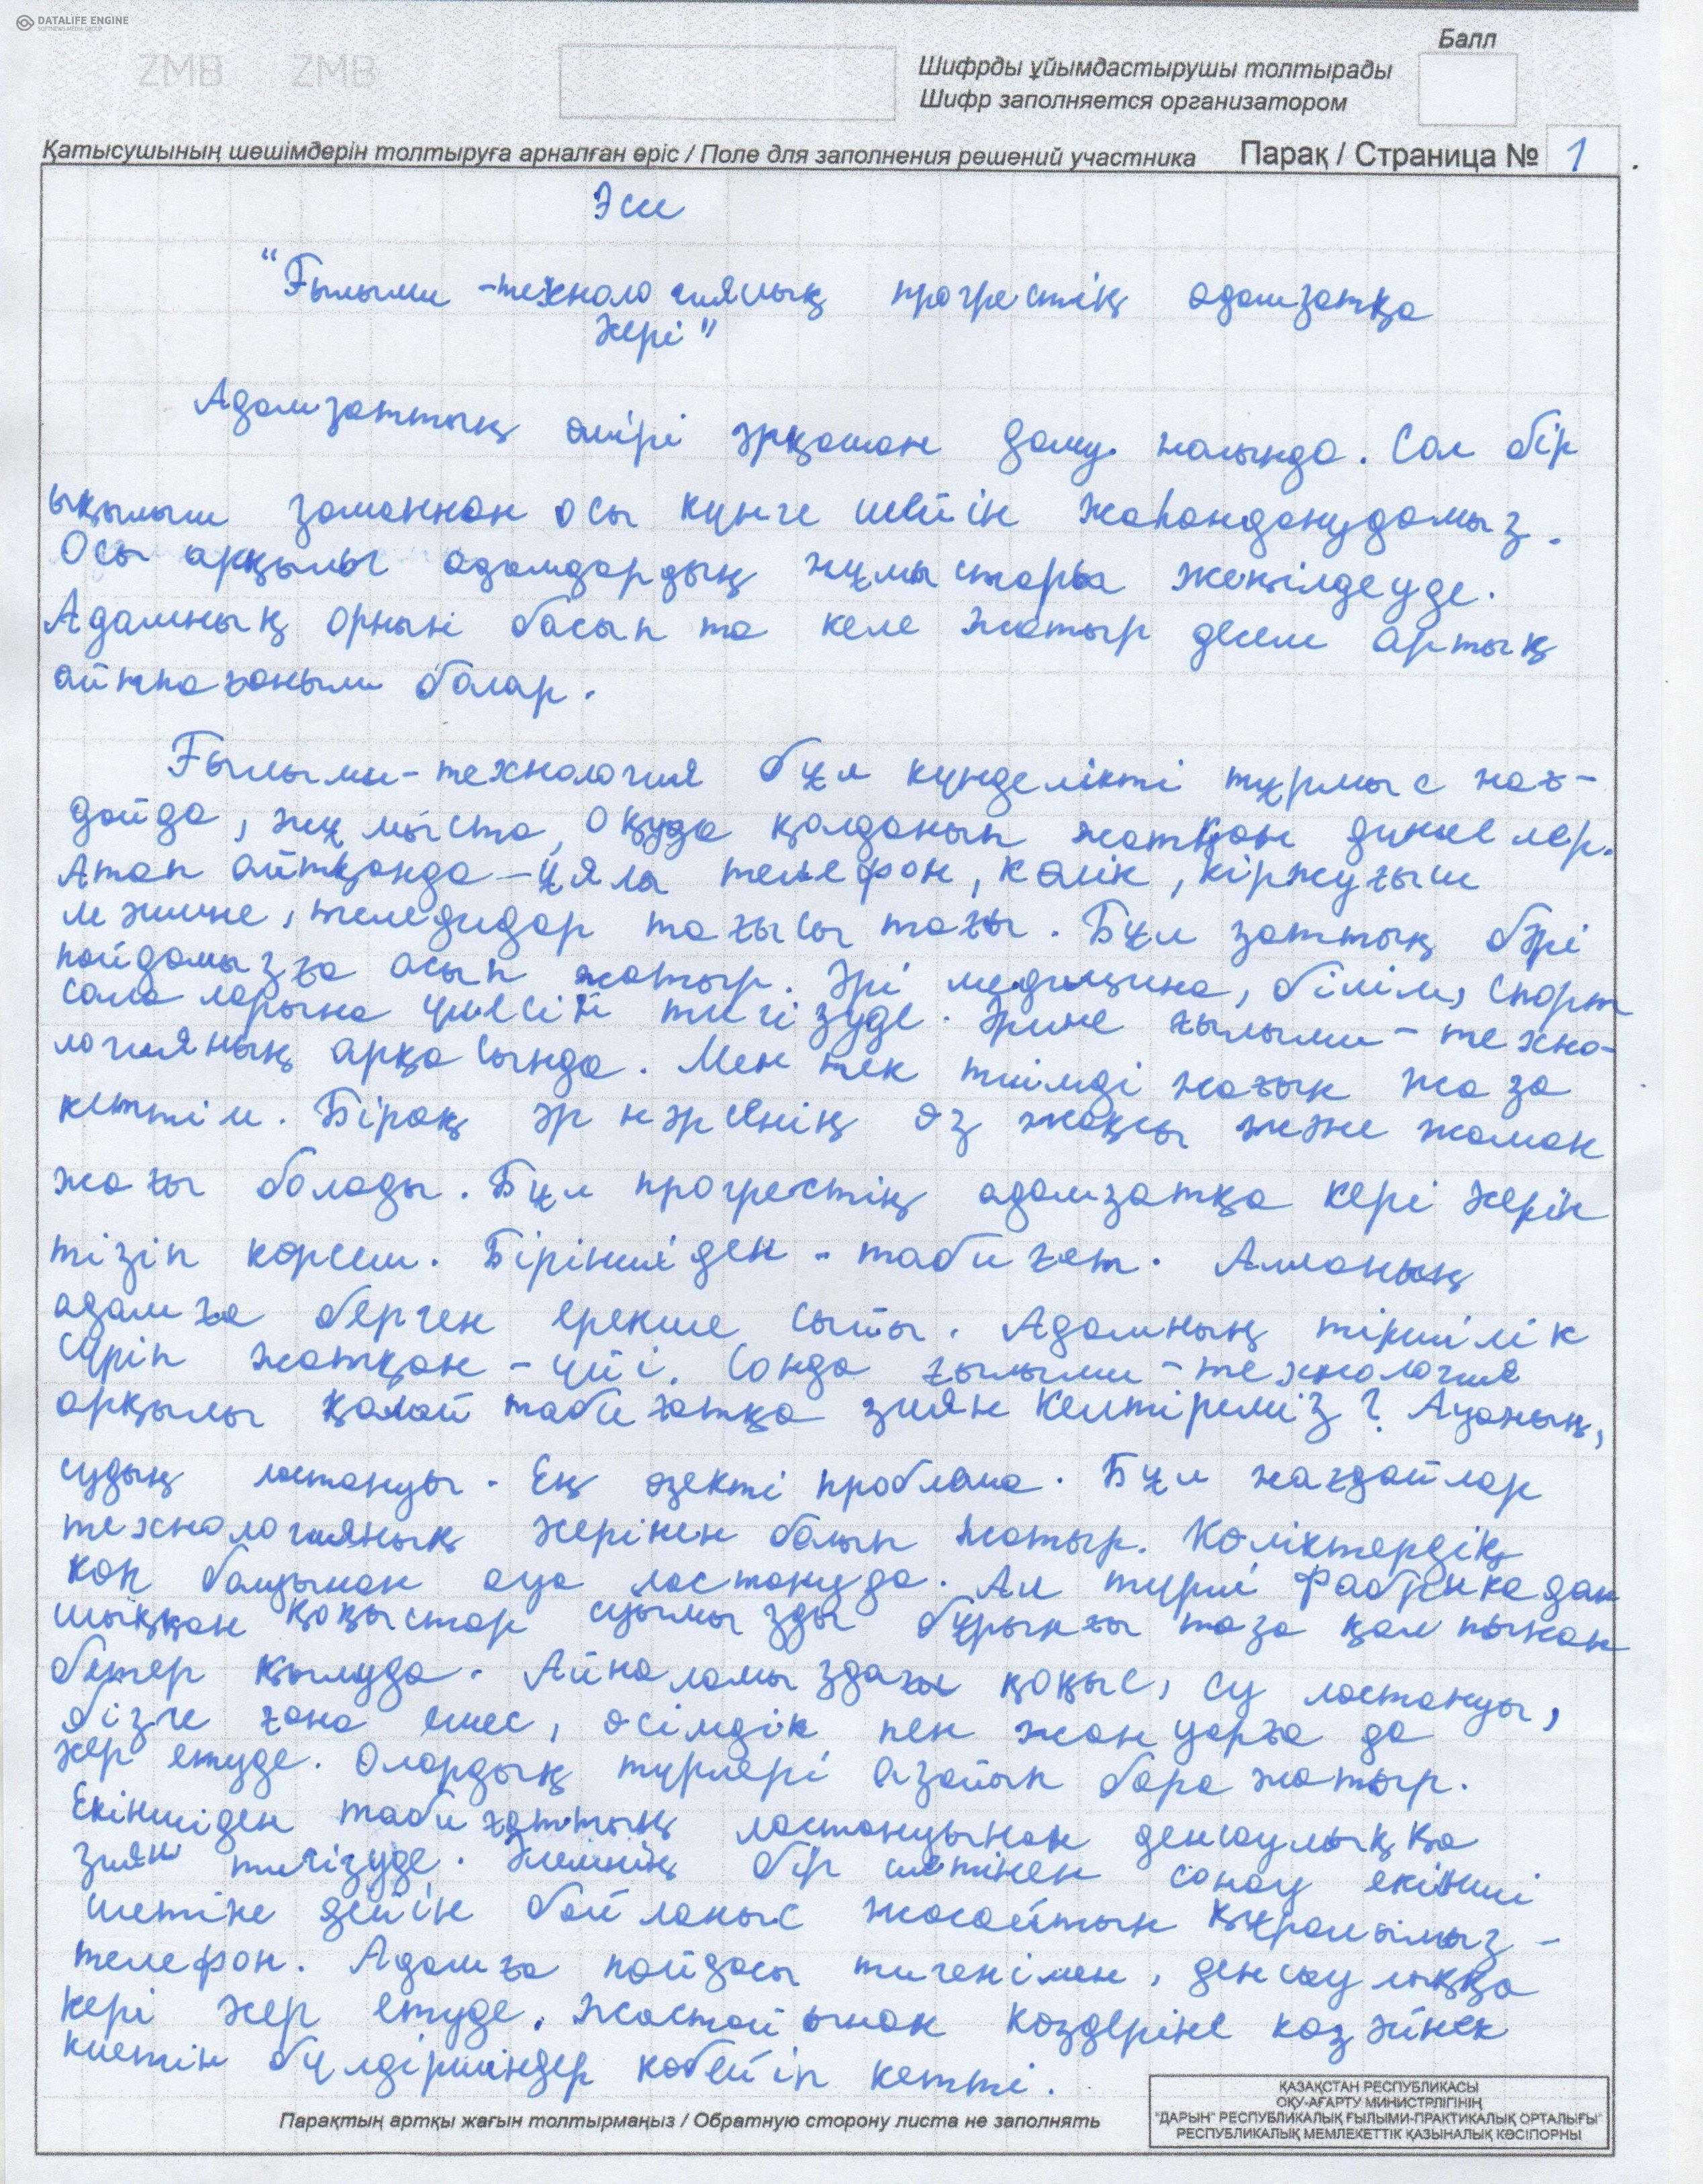 DATALIFE ENGINE
SOFTNEWS MEDIA GROUP
ZMB ZMB
Балл
Шифрды ұйымдастырушы толтырады
Шифр заполняется организатором
Қатысушының шешімдерін толтыруға арналған өріс / Поле для заполнения решений участника Парақ / Страница № 1
Эссе
"Ғылыми-технологиялық прогрестің адамзатқа
әсері"
Адамзаттың өмірі әрқашан даму жолында. Сол бір
ықылым заманнан осы күнге шейін жаһанданудамыз.
Осы арқылы адамдардың жұмыстары жеңілдеуде.
Адамның орнын басып та келе жатыр десем артық
айтпағаным болар.
Ғылыми-технология бұл күнделікті тұрмыс жағ-
дайда, жұмыста, оқуда қолданып жатқан дүниелер.
Атап айтқанда - ұялы телефон, көлік, кіржуғыш
машине, теледидар тағысы тағы. Бұл заттың бәрі
пайдамызға асып жатыр. Әрі медицина, білім, спорт
салаларына үлесін тигізуде. Әрине ғылыми-техно-
логияның арқасында. Мен тек тиімді жағын жаза
кеттім. Бірақ әр нәрсенің өз жақсы және жаман
жағы болады. Бұл прогрестің адамзатқа кері әсерін
тізіп көрсем. Біріншіден - табиғат. Алланың
адамға берген ерекше сыйы. Адамның тіршілік
сүріп жатқан - үйі. Сонда ғылыми-технология
арқылы қалай табиғатқа зиян келтіреміз? Ауаның,
судың ластануы. Ең өзекті проблема. Бұл жағдайлар
технологияның әсерінен болып жатыр. Көліктердің
көп болуынан ауа ластануда. Ал түрлі фабрикадан
шыққан қоқыстар суымызды бұрынғы таза қалпынан
бетер қылуда. Айналамыздағы қоқыс, су ластануы,
бізге ғана емес, өсімдік пен жануарға да
әсер етуде. Олардың түрлері азайып бара жатыр.
Екіншіден табиғаттың ластануынан денсаулыққа
зиян тигізуде. Әлемнің бір шетінен сонау екінші
шетіне дейін байланыс жасайтын құралымыз -
телефон. Адамға пайдасы тигенімен, денсаулыққа
кері әсер етуде. Жастайынан көздеріне көзәйнек
киетін бүлдіршіндер көбейіп кетті.
Парақтың артқы жағын толтырмаңыз / Обратную сторону листа не заполнять
ҚАЗАҚСТАН РЕСПУБЛИКАСЫ
ОҚУ-АҒАРТУ МИНИСТРЛІГІНІҢ
"ДАРЫН" РЕСПУБЛИКАЛЫҚ ҒЫЛЫМИ-ПРАКТИКАЛЫҚ ОРТАЛЫҒЫ"
РЕСПУБЛИКАЛЫҚ МЕМЛЕКЕТТІК ҚАЗЫНАЛЫҚ КӘСІПОРНЫ